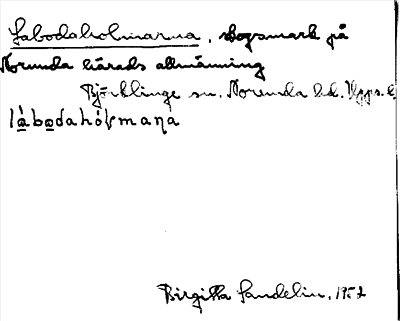 Labodaholmarna, skogsmark på
Norunda härads allmänning
Björklinge sn. Norunda hd. Upps. l.
Birgitta Sandelin, 1952